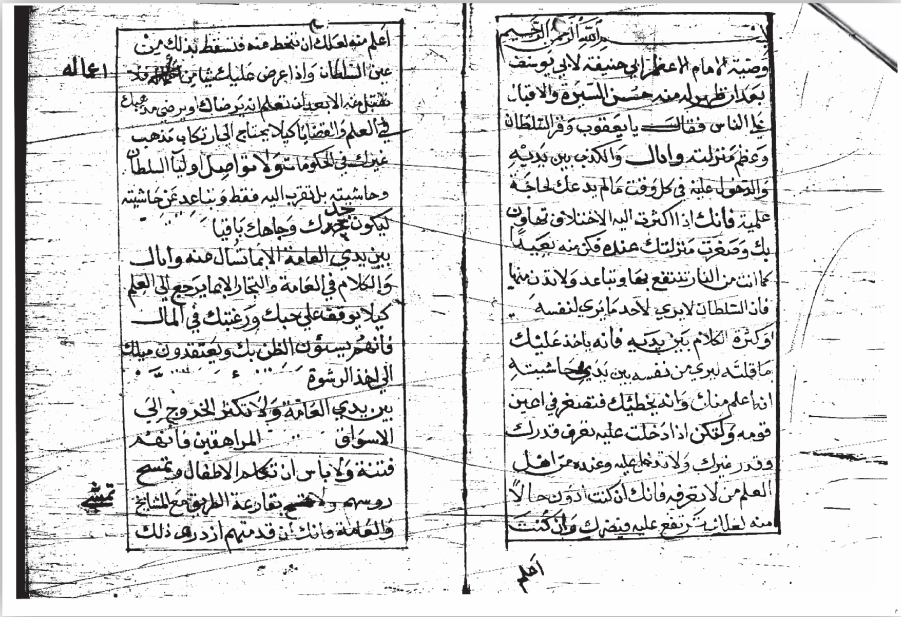 بسم الله الرحمن الرحيم
وصية الامام الاعظم ابي حنيفة لابي يوسف
بعد ان ظهر له منه حسن السيرة والاقبال
على الناس فقال يا يعقوب وقر السلطان
وعظم منزلته واياك والكذب بين يديه
والدخول عليه في كل وقت مالم يدعك لحاجة
علمية فانك اذا اكثرت اليه الاختلاف تهاون
بك وصغرت منزلتك عنده فكن منه
كما انت من النار تنتفع بها وتباعد ولا تدن منها
فان السلطان لا يري لاحد ما يري لنفسه
وكثرة الكلام بين يديه فانه ياخذ عليك
ما قلته ليري من نفسه بين يدي حاشيته
انه اعلم منك وانه يخطئك فتصغر في اعين
قومه ولتكن اذا دخلت عليه تعرف قدرك
وقدر غيرك ولا تدخل عليه وعنده من اهل
العلم من لا تعرفه فانك ان كنت ادون حالا
منه لعلك ترتفع عليه فيضرك وان كنت
اعلم
اعلم منه لعلك ان تنحط منه فتسقط بذلك من
عين السلطان واذا عرض عليك شيا من فلا
اعماله
تقبل منه الا بعد ان تعلم انه يرضاك ويرضي مذهبك
في العلم والقضايا كيلا يحتاج الى ارتكاب مذهب
غيرك في الحكومات ولا تواصل اوليا السلطان
وحاشيته بل تقرب اليه فقط وتباعد عن حاشيته
ليكون مجدك وجاهك باقيا
بين يدي العامة الا بما تسال عنه واياك
والكلام في العامة والتجار الا بما يرجع الى العلم
كيلا يوقف علي حبك ورغبتك في المال
فانهم يسئون الظن بك ويعتقدون ميلك
الى اخذ الرشوة
بين يدي العامة ولا تكثر الخروج الى
الاسواق المراهقين فانهم
فتنة ولا باس ان تكلم الاطفال وتمسح
روسهم ولا بقارعة الطريق مع المشايخ
تمشي
والعامة فانك ان قدمتهم ازدري ذلك